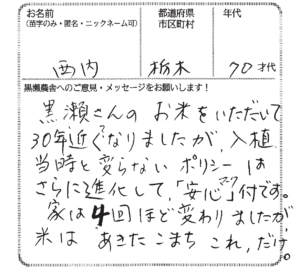 お名前
（苗字のみ・匿名・ニックネーム可）
都道府県
市区町村
年代
西内
栃木
70才代
黒瀬農舎へのご意見・メッセージをお願いします！
黒瀬さんの お米をいただいて
30年近くなりましたが、入植
当時と変らない ポリシーは
さらに進化して、「安心」マーク付です。
家は4回ほど変わりましたが、
米は あきたこまち これ、だけ。